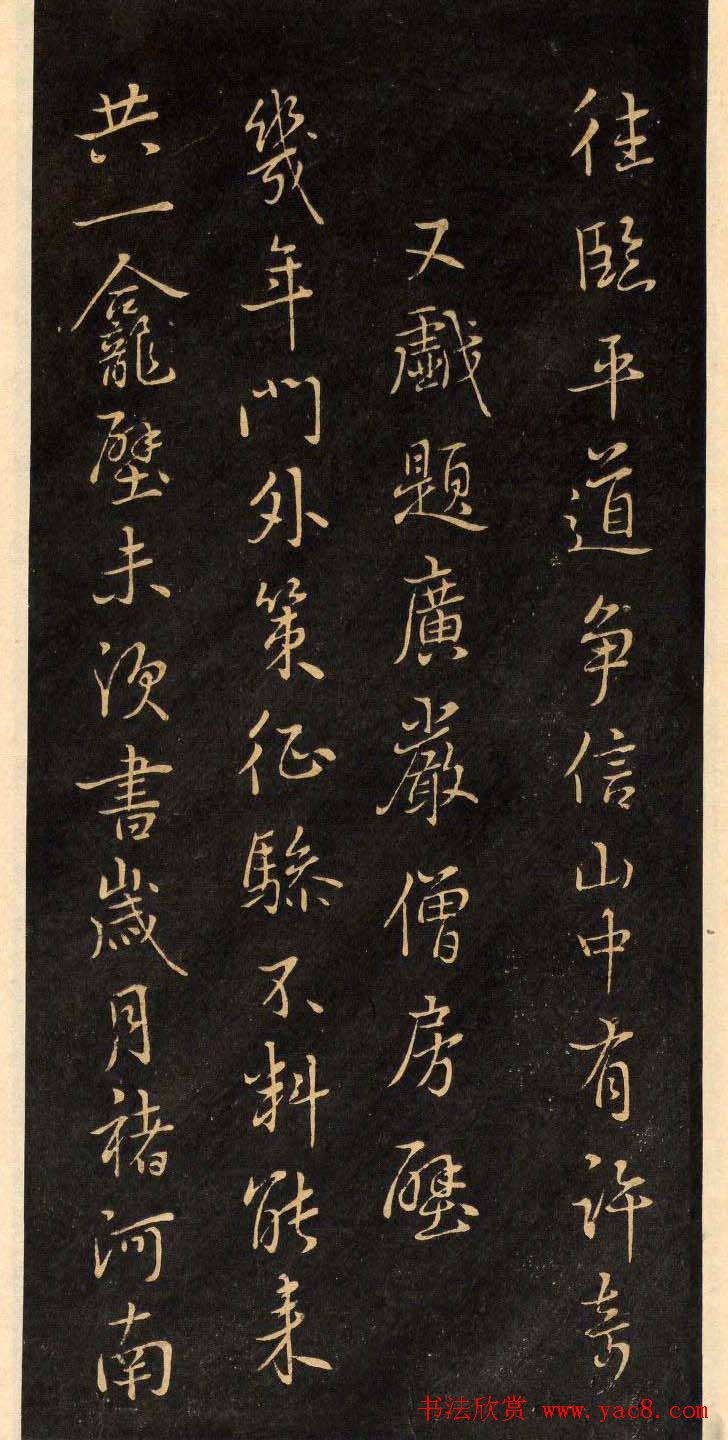 往臨平道争信山中有許奇
又戲題廣嚴僧房壁
幾年門外策征驂不料能来
共一龕壁未須書歲月褚河南
书法欣赏 www.yac8.com